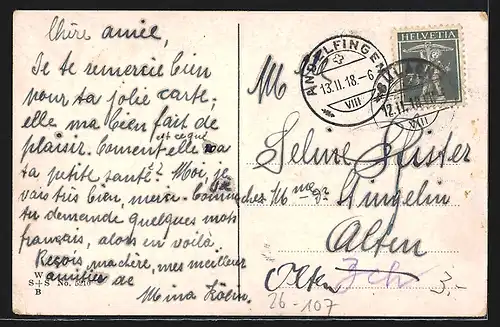 Chère amie,
Je te remercie bien
pour ta jolie carte;
elle m'a bien fait de
plaisir. Coment est ce que
ta petite santé? Moi, je
vais très bien, merci. Comme
tu demande quelques mots
français, alors en voilà.
Reçois, ma chère, mes meilleur
amitiés de
Mina
W
S+S No.
B
HELVETIA
ANDELFINGEN
13.II.18.-6
VIII
12.II.18
VIII
M
Selma
chez Mme
Gingelin
Alten
Olten
3.-
26-107